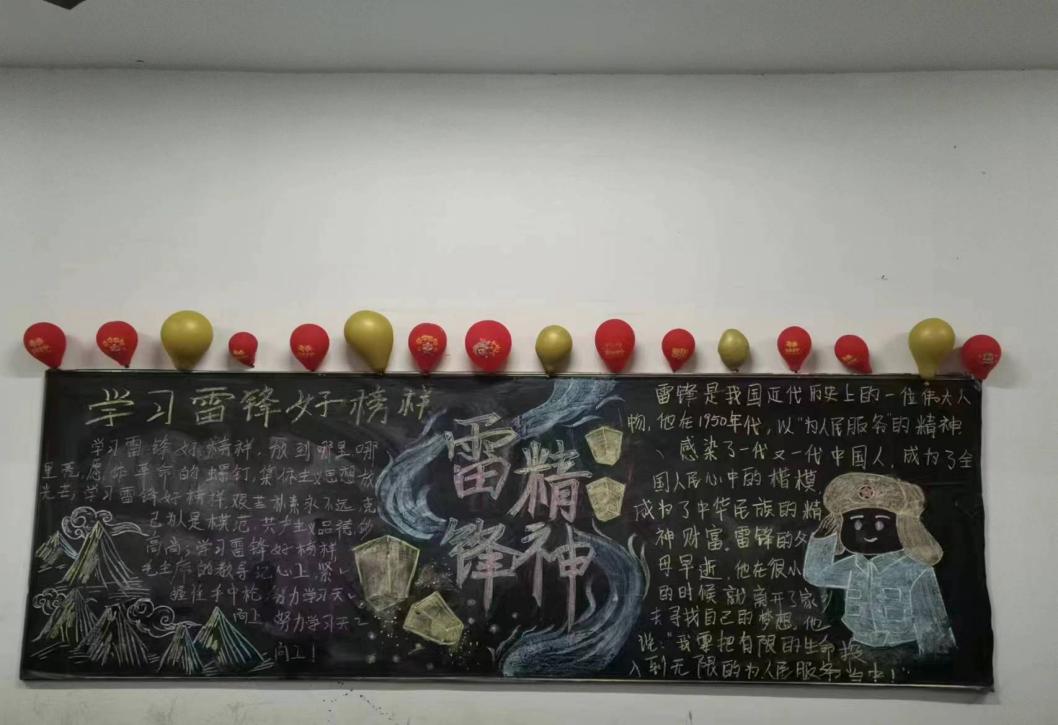 学习雷锋好榜样
学习雷锋好榜样，放到哪里哪
里亮，愿作革命的螺钉，集体主义思想放
光芒，学习雷锋好榜样，艰苦朴素永不忘，克
己为人是模范，共产主义品德多
高尚，学习雷锋好榜样
毛主席的教导记心上，紧
握住手中枪，努力学习天
向上，努力学习天
向上！
雷锋
精神
雷锋是我国近代历史上的一位伟大人
物，他在1950年代，以“为人民服务”的精神
、感染了一代又一代中国人，成为了全
国人民心中的楷模，
成为了中华民族的精
神财富。雷锋的父
母早逝，他在很小
的时候就离开了家
去寻找自己的梦想。他
说：“我要把有限的生命投
入到无限的为人民服务当中！”